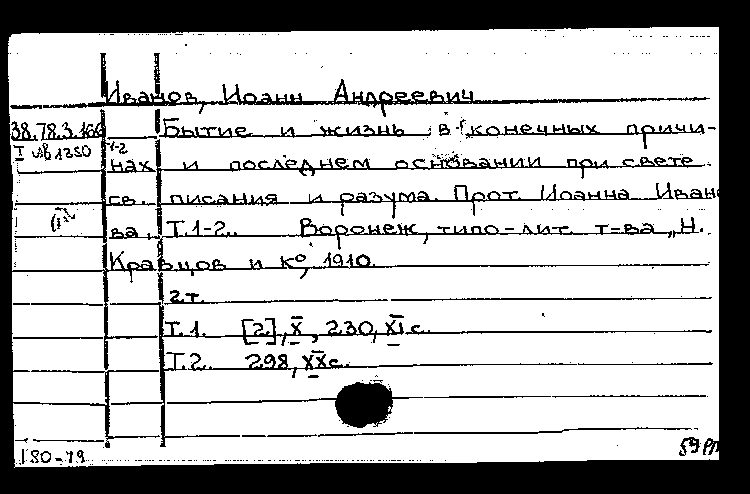 Иванов, Иоанн Андреевич
38.78.3.166 Бытие и жизнь в конечных причи-
I ив 1350 1-2 нах и последнем основании при свете
св. писания и разума. Прот. Иоанна Ивано
ва. Т.1-2. Воронеж, типо-лит. т-ва „Н.
Кравцов и ко, 1910.
2т.
Т.1. [2], X, 230, XI с.
Т.2. 298, XX с.
180-79